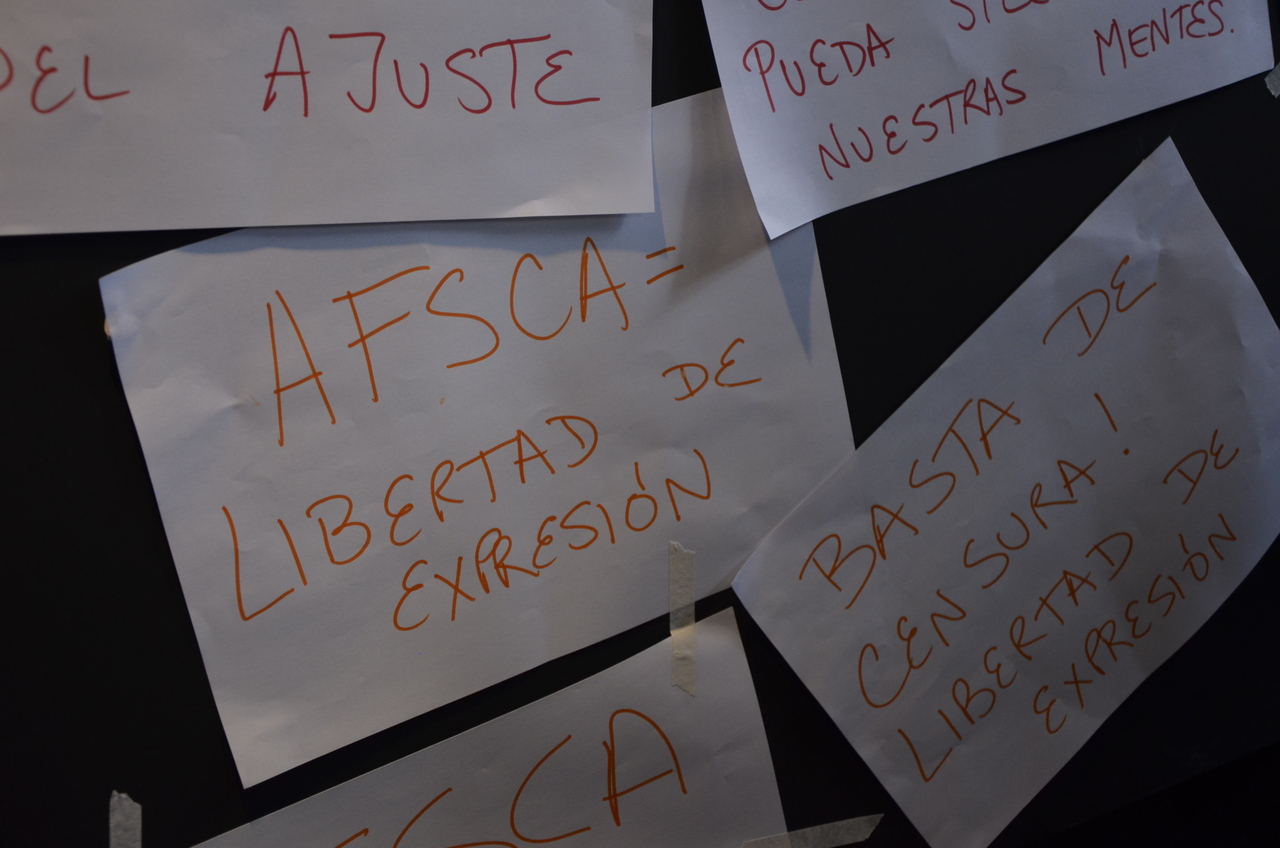 DEL AJUSTE
PUEDA
NUESTRAS MENTES.
AFSCA =
LIBERTAD DE
EXPRESIÓN
BASTA DE
CENSURA!
LIBERTAD DE
EXPRESIÓN
SCA